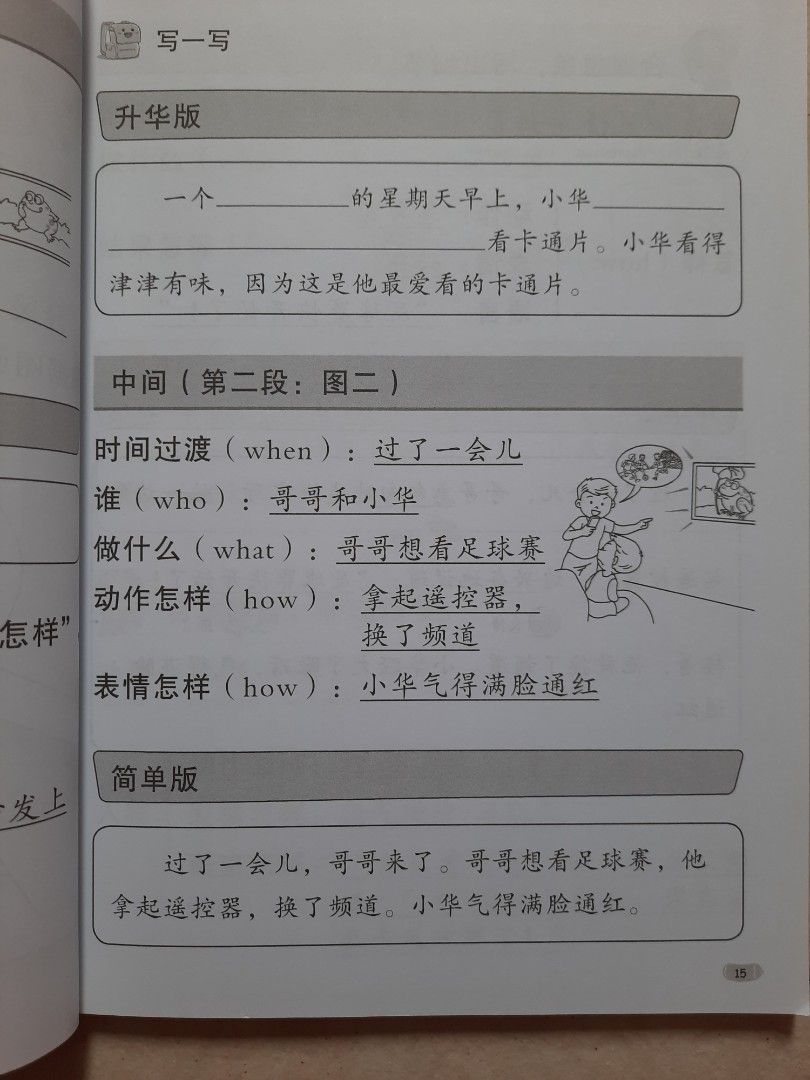 写一写
升华版
一个____________的星期天早上，小华____________
__________________________________看卡通片。小华看得
津津有味，因为这是他最爱看的卡通片。
中间（第二段：图二）
时间过渡（when）：过了一会儿
谁（who）：哥哥和小华
做什么（what）：哥哥想看足球赛
动作怎样（how）：拿起遥控器，
换了频道
表情怎样（how）：小华气得满脸通红
简单版
过了一会儿，哥哥来了。哥哥想看足球赛，他
拿起遥控器，换了频道。小华气得满脸通红。
15
怎样”
发上